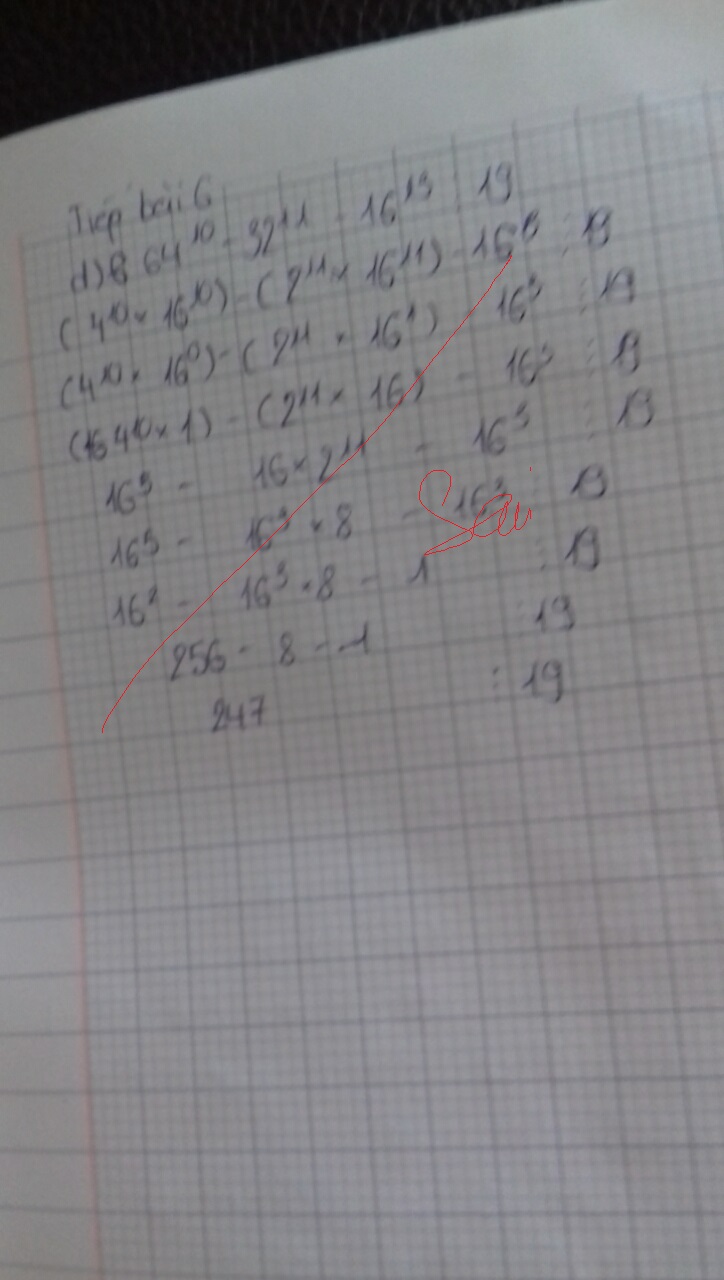 Tiếp bài 6
d) B 64¹⁰ - 32¹¹ - 16¹³ 19
(4¹⁰ × 16¹⁰) - (2¹¹ × 16¹¹) - 16¹³ ⋮ 19
(4¹⁰ × 16⁰) - (2¹¹ × 16¹) - 16³ ⋮ 19
(4¹⁰ × 1) - (2¹¹ × 16) - 16³ ⋮ 19
16⁵ - 16 × 2¹¹ - 16³ ⋮ 19
16⁵ - 16³ × 8 - 16³ ⋮ 19
16² - 16³ × 8 - 1 ⋮ 19
256 - 8 - 1 ⋮ 19
247 ⋮ 19
Sai